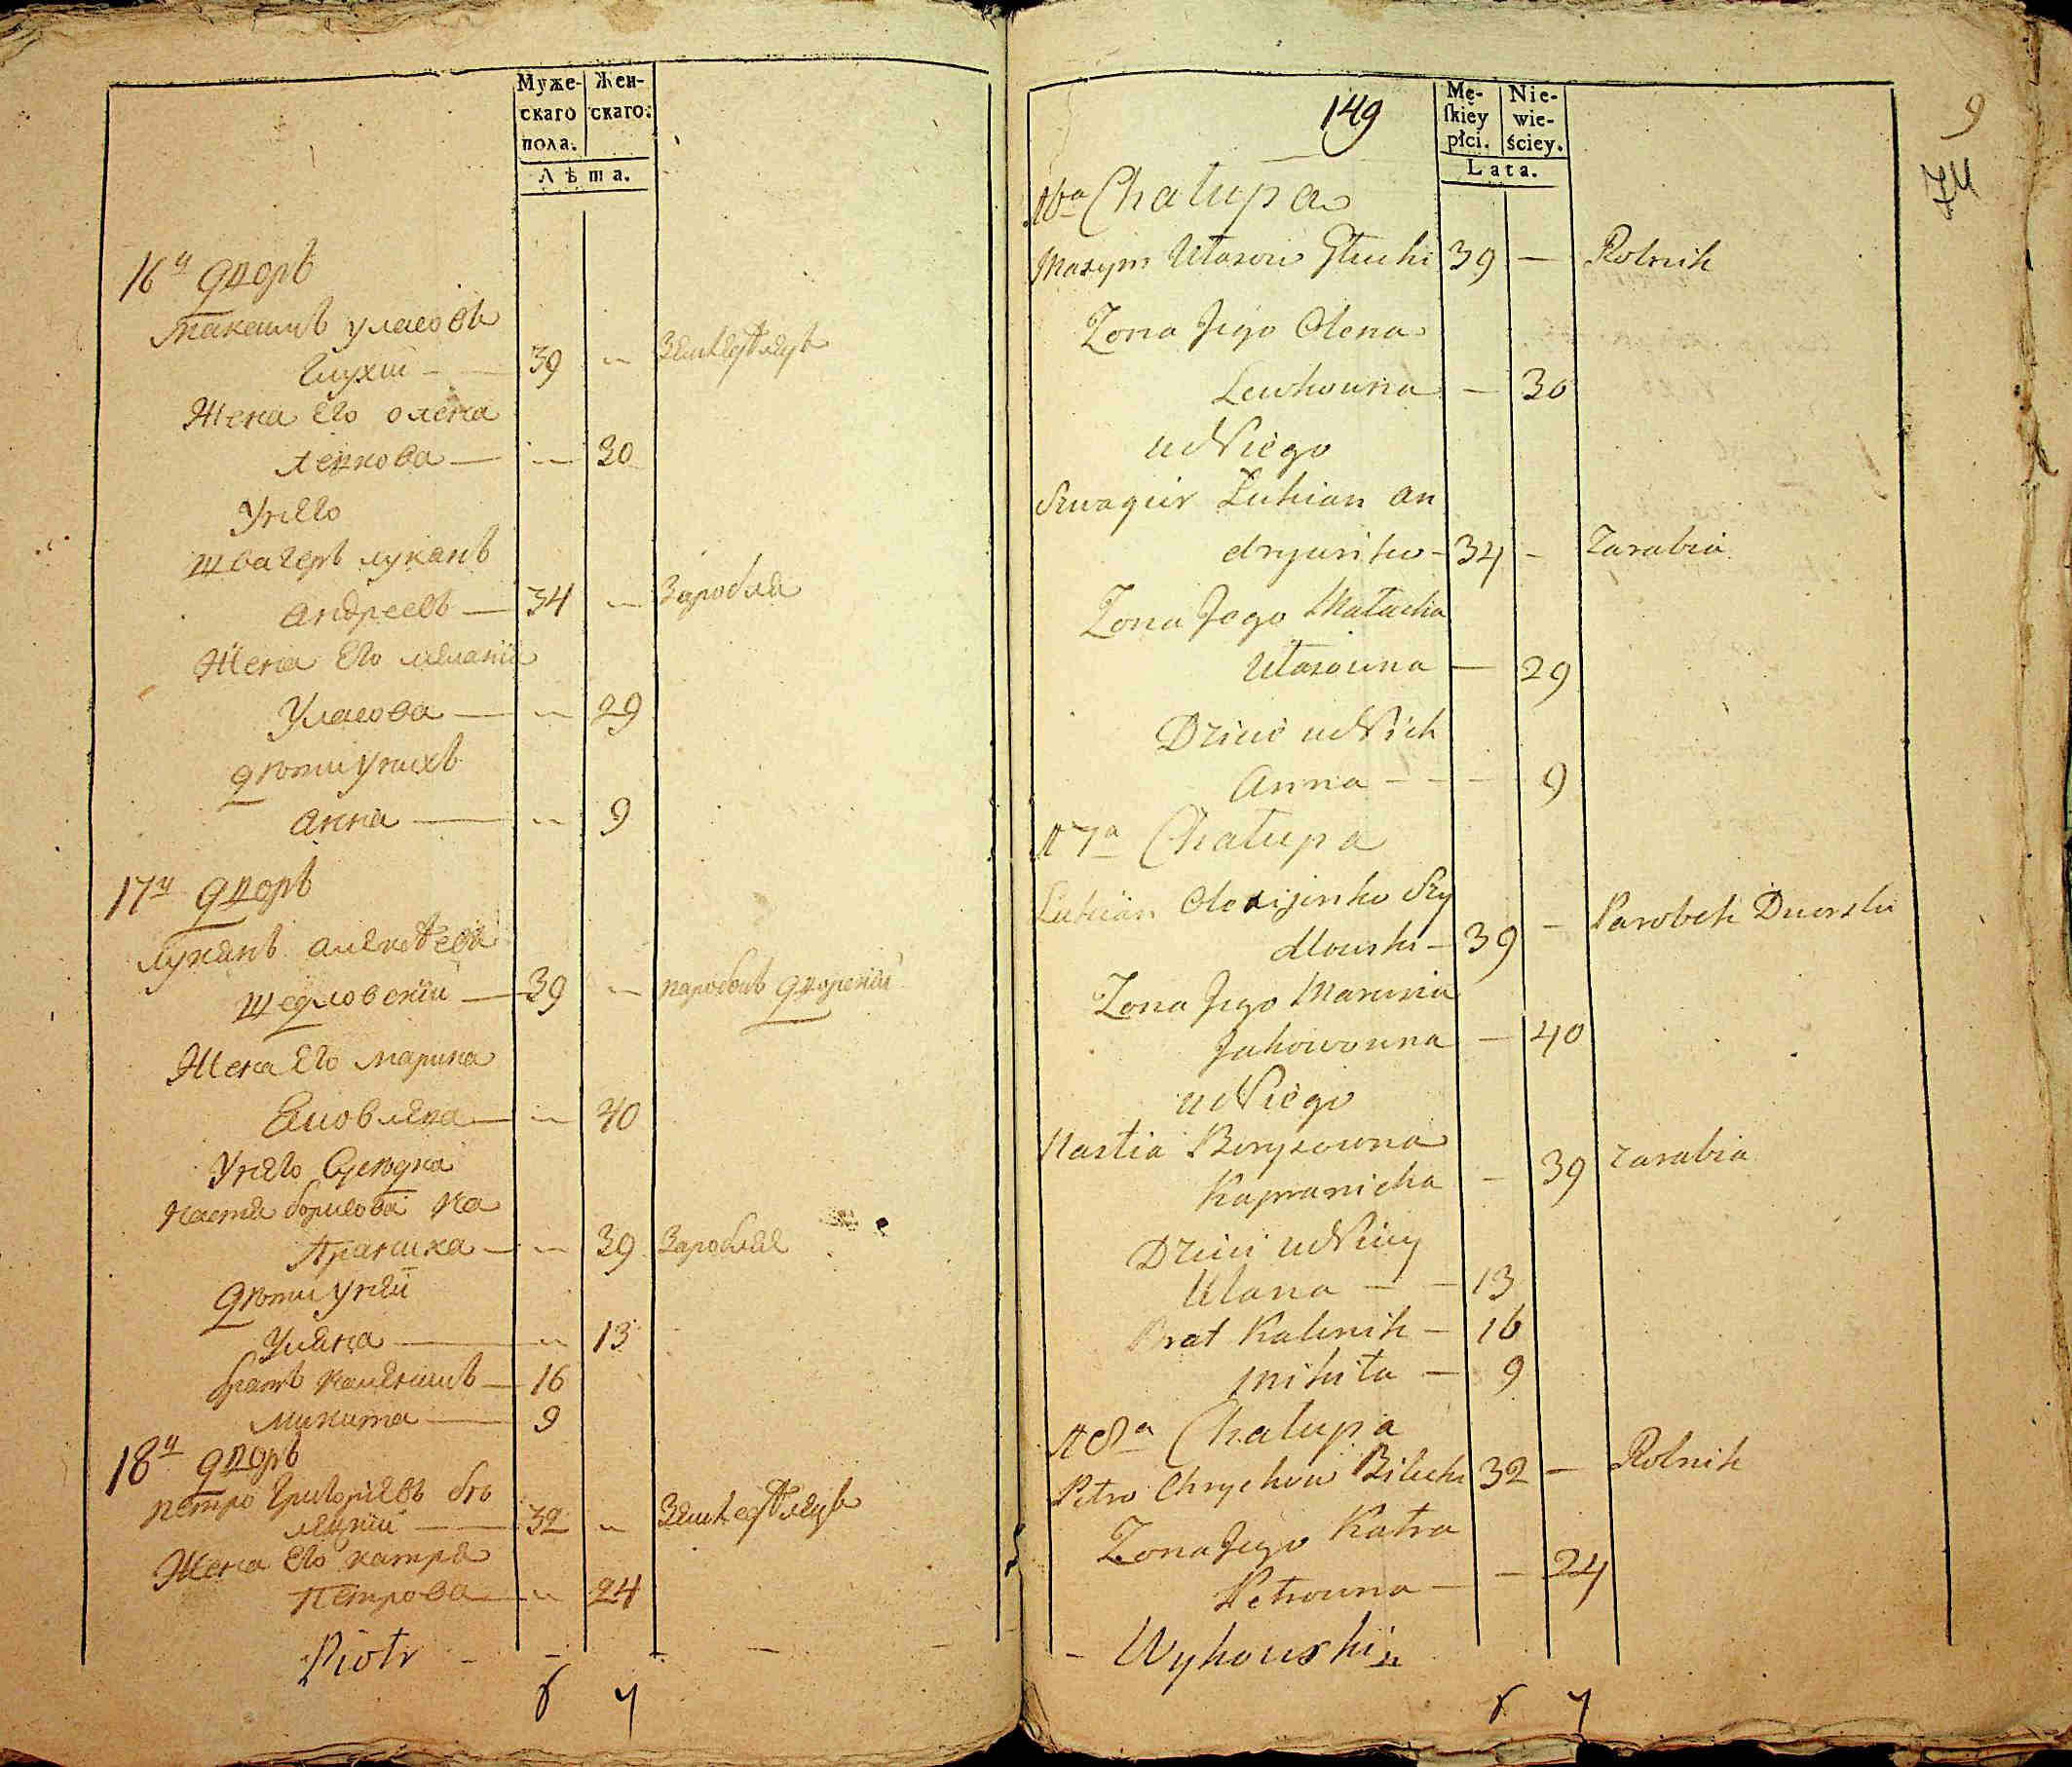 Муже-
скаго
пола.
Жен-
скаго.
Лѣта.
16й дворъ
Макѣимъ Уласовъ
Глухій — 39 — Землѣделецъ
Жена Его олена
Левкова — — 30
У него
Швагеръ луканъ
Андреевъ — 34 — Заробляе
Жена Его маланія
Уласова — — 29
дѣти У нихъ
Анна — — 9
17й дворъ
Луканъ алексѣевъ
Шедловскій — 39 — паробокъ дворскій
Жена Его марина
Яковлева — — 40
У него
Настя борисова Ка
праниха — — 39 Заробляе
дѣти У нея
Уляна — — 13
братъ Каленикъ — 16
Микита — 9
18й дворъ
Петро Григоріевъ бѣ
лецкій — 32 — Землѣделецъ
Жена Его катря
Петрова — — 24
Piotr - - - -
6 7
149
9
74
Mę-
ſkiey
płci.
Nie-
wie-
ściey.
Lata.
16a Chałupa
Maxym Ułasow Głuchi 39 — Rolnik
Zona Jego Olena
Lewkowna — 30
u Niego
Szwagier Łukian an
dryienko - 34 - Zarabia
Zona Jego Małachia
Ułasowna — 29
Dzieci u Nich
Anna - - - 9
17a Chałupa
Łukian Olexijenko Szy
dłowski - 39 - Parobek Dworski
Zona Jego Marina
Jakowowna — 40
u Niego
Nastia Borysowna
Kapranicha - 39 zarabia
Dzieci u Niey
Ulana — - 13
Brat Kalenik - 16
Mikita - 9
18a Chałupa
Petro Chryckow Bilecki 32 — Rolnik
Zona Jego Katra
Petrowna - - 24
- Wykowski
6 7